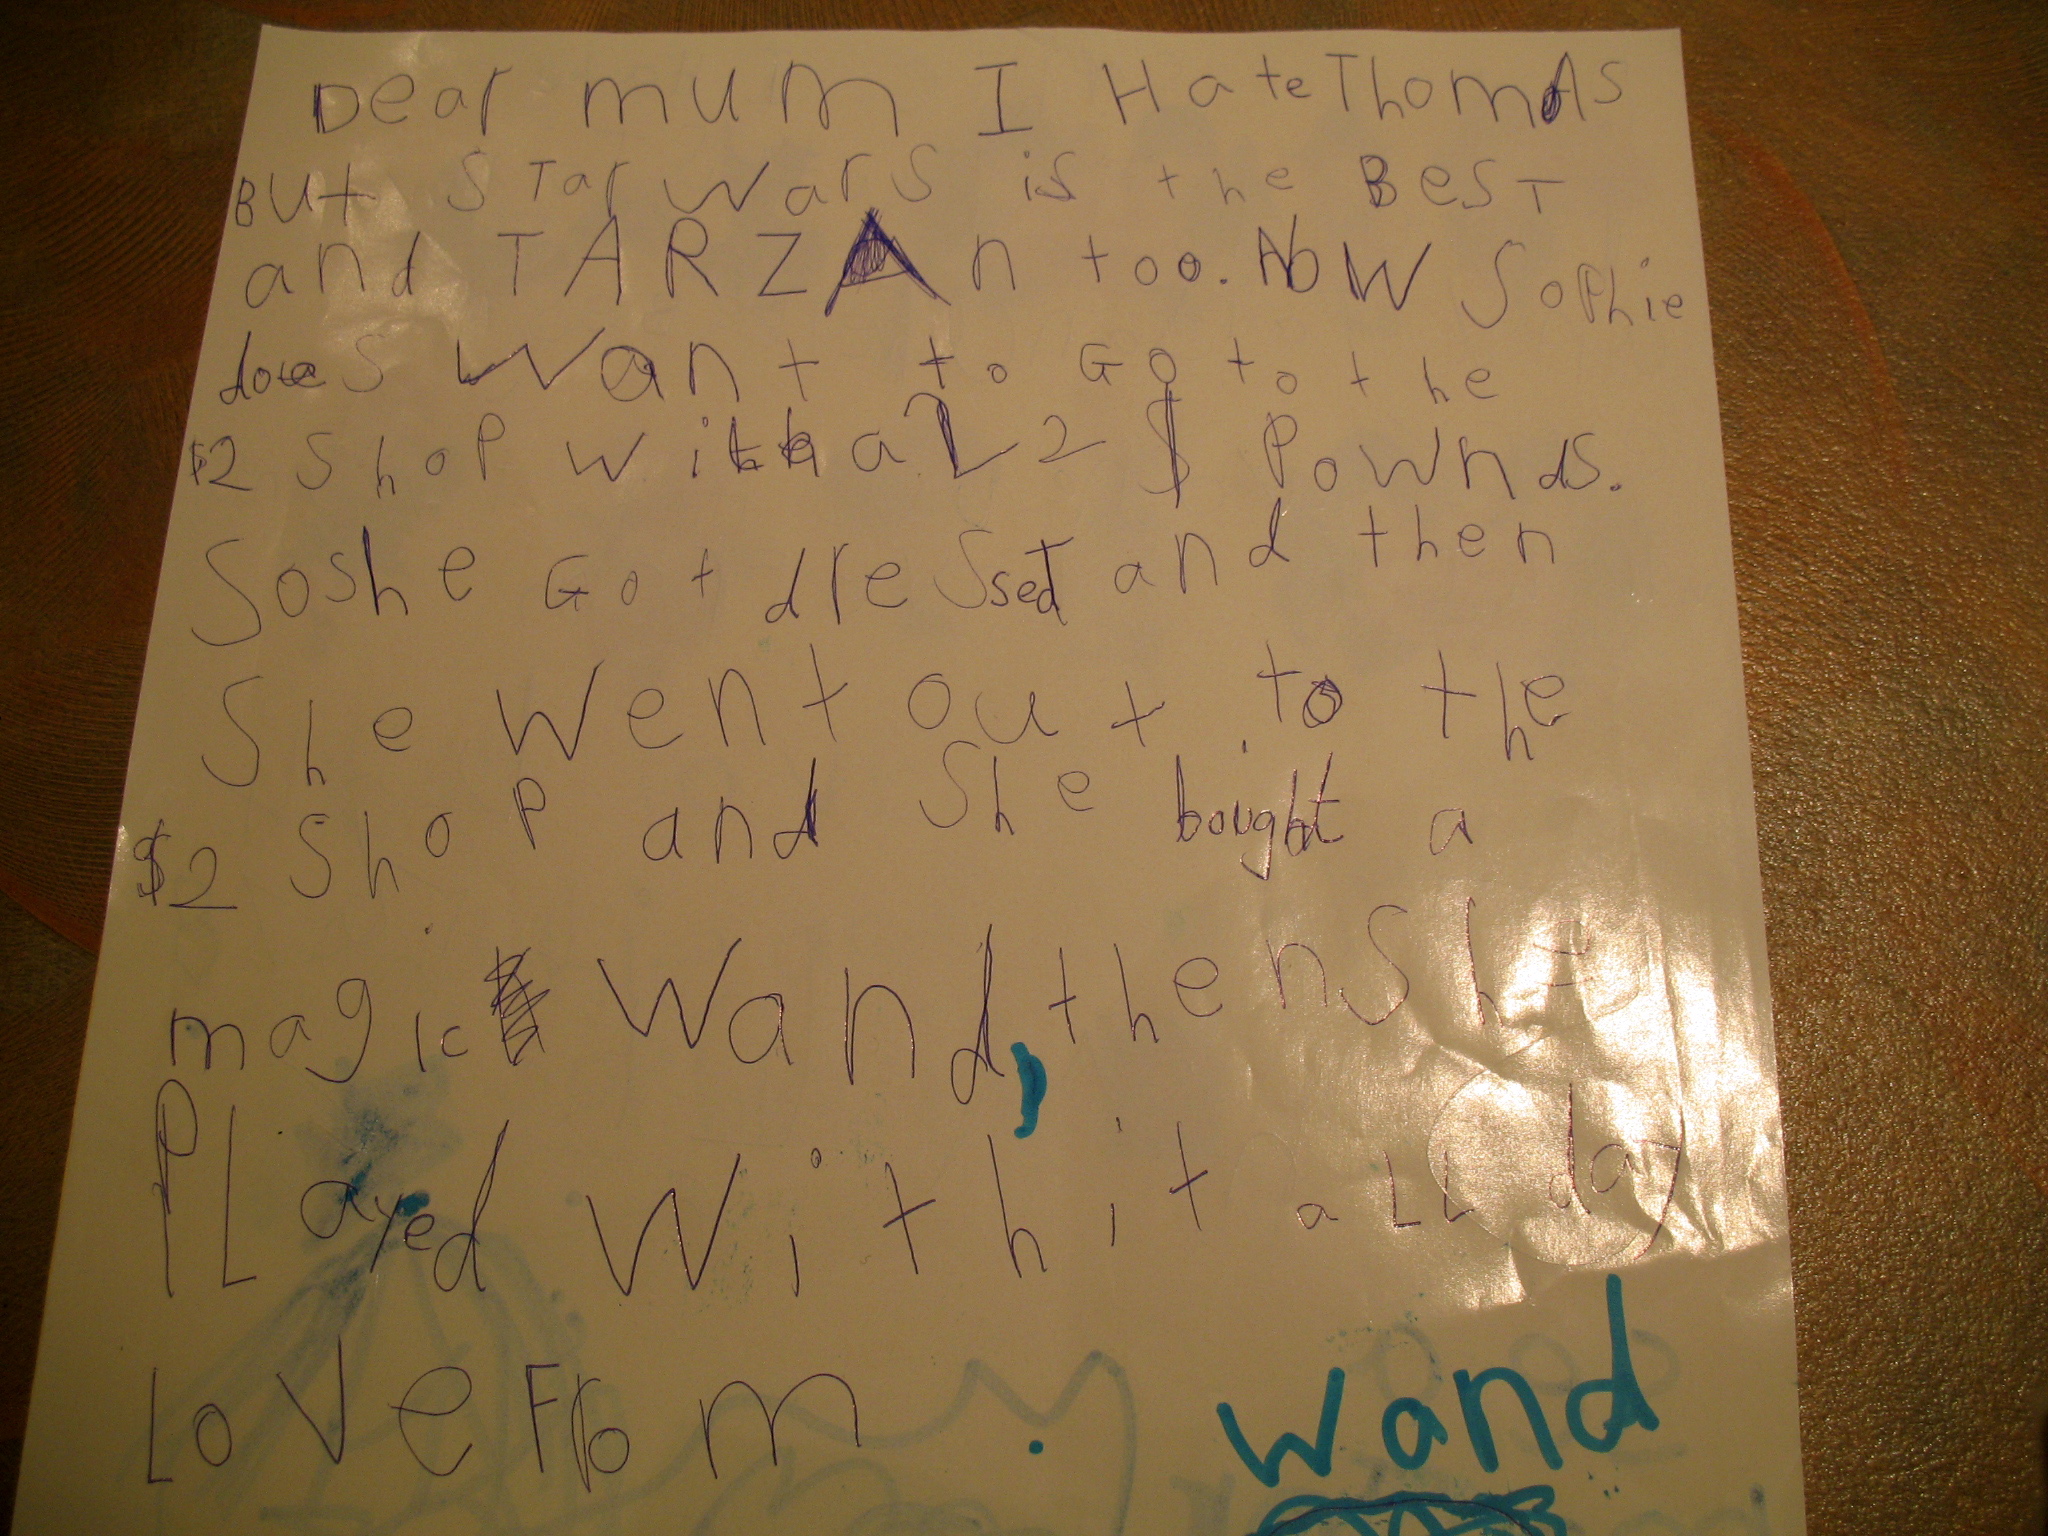 Dear mum I Hate ThomAs
BUt STarWars is the BesT
and TARZAn too. NoW Sophie
does Want to Go to the
$2 shop with a 2 $ Pownds.
So she Got dressed and then
She Went out to the
$2 ShoP and She bought a
magic Wand, then She
PLayed With it aLL day
Love From .
wand